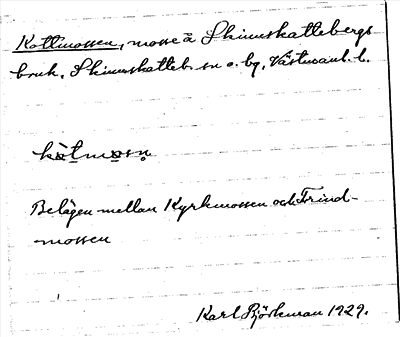 Kottmossen, mosse å Skinnskattebergs
bruk, Skinnskatteb. sn o. bg, Västmanl. l.
kòtmosn
Belägen mellan Kyrkmossen och Trind-
mossen
Karl Björkman 1929.